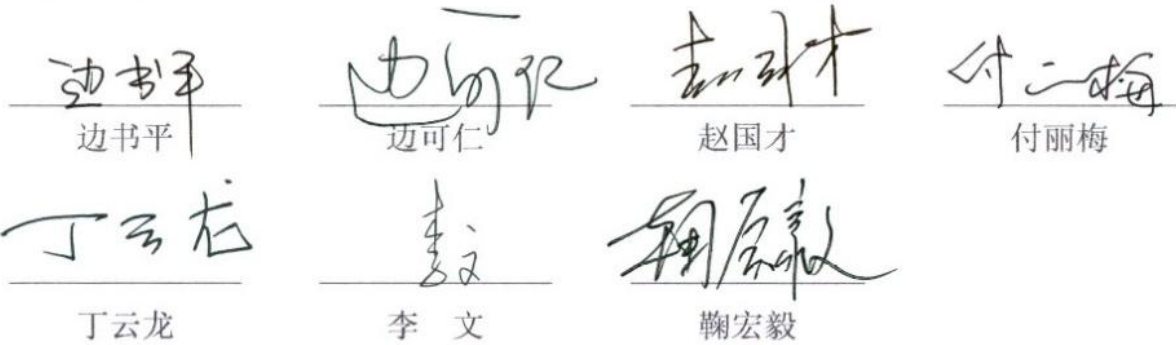 边书平 边可仁 赵国才 付丽梅
边书平 边可仁 赵国才 付丽梅
丁云龙 李文 鞠宏毅
丁云龙 李 文 鞠宏毅